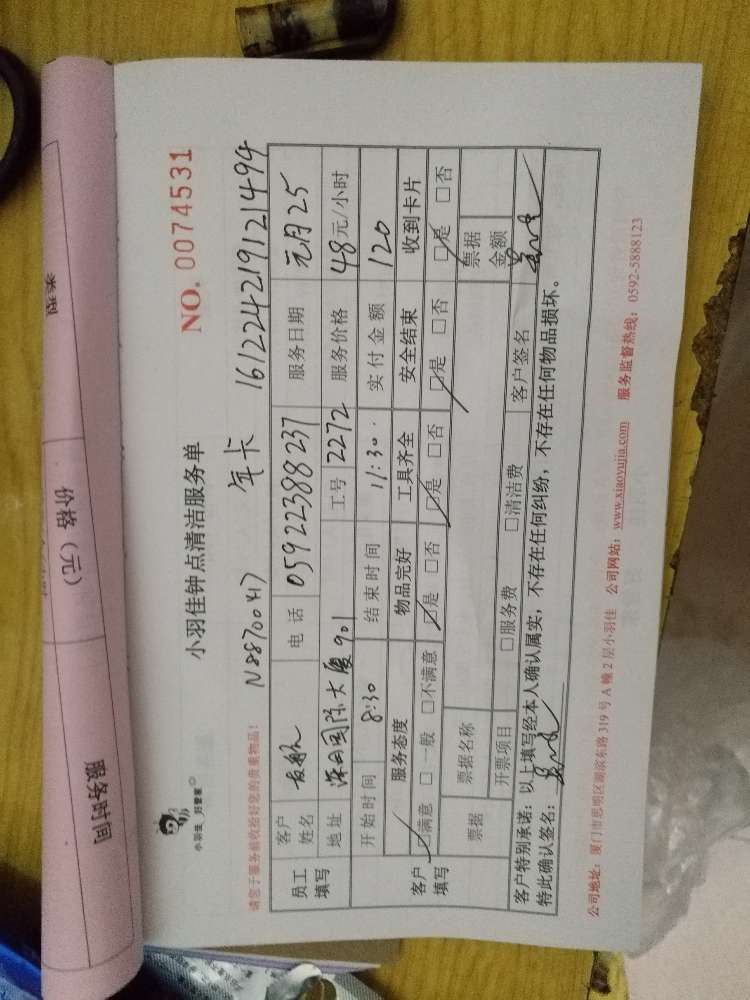 小羽佳 好管家
小羽佳钟点清洁服务单
NO. 0074531
请您于服务前收拾好您的贵重物品!
N8870047 年卡 161224219121494
员工填写
客户姓名 友航 电话 05922388237 服务日期 元月25
地址 深田国际大厦901 工号 2272 服务价格 48元/小时
开始时间 8:30 结束时间 11:30 实付金额 120
客户填写
服务态度 物品完好 工具齐全 安全结束 收到卡片
□满意 □一般 □不满意 □是 □否 □是 □否 □是 □否 □是 □否
票据 票据名称 票据金额
开票项目 □服务费 □清洁费
客户特别承诺:以上填写经本人确认属实,不存在任何纠纷,不存在任何物品损坏。
特此确认签名: 客户签名
公司地址:厦门市思明区湖滨东路319号A幢2层小羽佳 公司网站:www.xiaoyujia.com 服务监督热线:0592-5888123
类型
价格(元)
服务时间